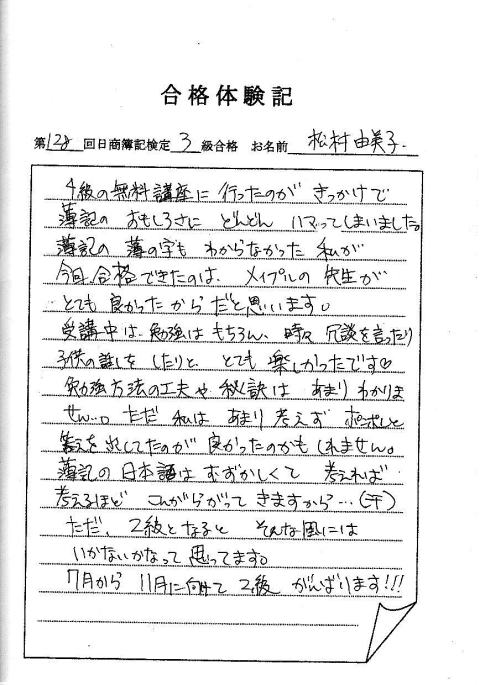 合格体験記
第128回日商簿記検定3級合格 お名前 松村由美子
4級の無料講座に 行ったのが きっかけで
簿記の おもしろさに どんどん ハマってしまいました。
簿記の 簿の字も わからなかった 私が
今回、合格できたのは、メイプルの 先生が
とても 良かった からだと思います。
受講中は、勉強は もちろん、時々 冗談を言ったり
子供の話しを したりと、とても 楽しかったです♡
勉強方法の工夫や 秘訣は あまり わかりま
せん…。ただ 私は あまり 考えず ポンポンと
答えを 出してたのが 良かったのかも しれません。
簿記の 日本語は むずかしくて 考えれば
考えるほど こんがらがって きますから…(汗)
ただ、2級と なると そんな風には
いかないかなって 思ってます。
7月から 11月に向けて 2級 がんばります!!!